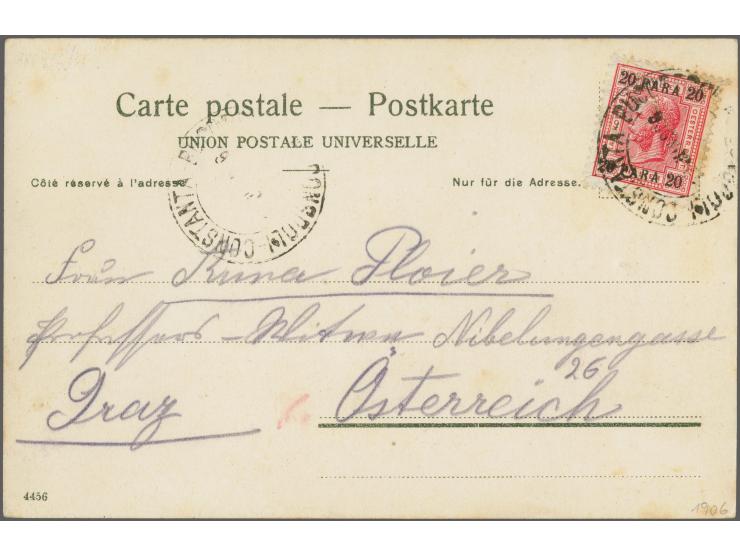 Carte postale — Postkarte
UNION POSTALE UNIVERSELLE
Côté réservé à l'adresse
Nur für die Adresse.
20 PARA 20
20 PARA 20
CONSTANTA
CONSTANTA
Ploier
Professors-Witwe Nibelungengasse
26
Graz Österreich
4456
1906